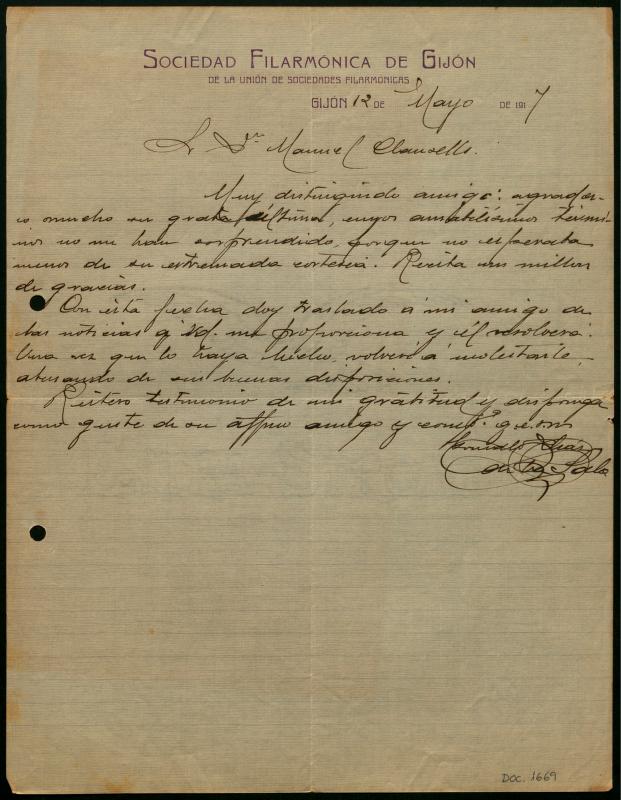 SOCIEDAD FILARMÓNICA DE GIJÓN
DE LA UNIÓN DE SOCIEDADES FILARMÓNICAS
GIJÓN 12 DE Mayo DE 1917
Sr Dn Manuel Clausells.
Muy distinguido amigo: agradez-
co mucho su grata última, cuyos amabilísimos térmi-
nos no me han sorprendido, porque no esperaba
menos de su extremada cortesía. Reciba un millon
de gracias.
Con esta fecha doy traslado á mi amigo de
las noticias q. Vd. me proporciona y él resolverá.
Una vez que lo haya hecho, volveré á molestarle,
abusando de sus buenas disposiciones.
Reitero testimonio de mi gratitud y disponga
como guste de su affmo amigo y comp.º q.e.s.m
de la Sala
DOC. 1669